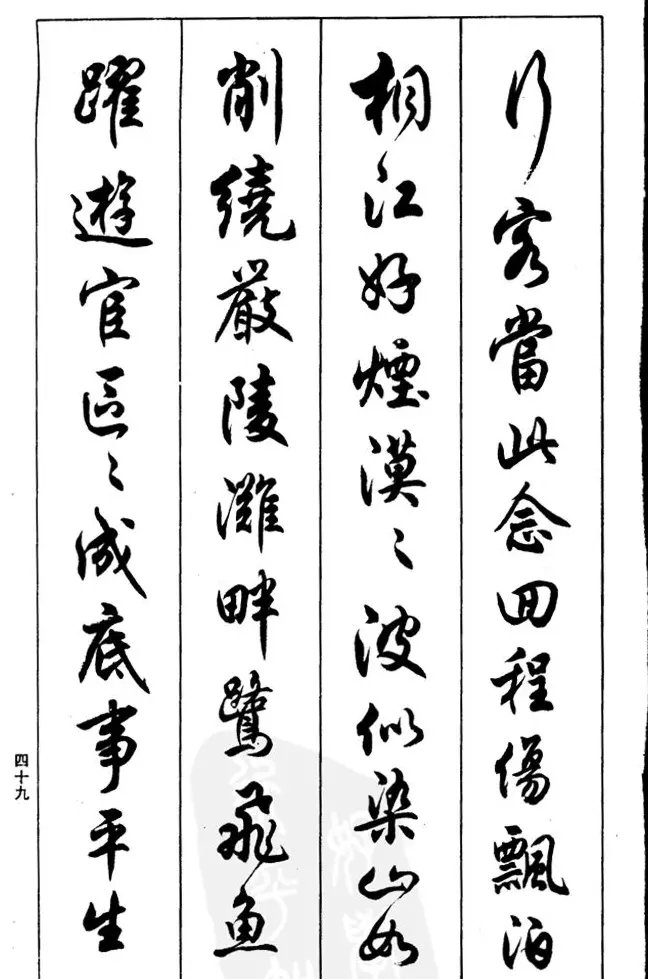 行客當此念囬程傷飄泊
桐江好煙漠〻波似染山如
削繞嚴陵灘畔鷺飛魚
躍遊宦區〻成底事平生
四十九